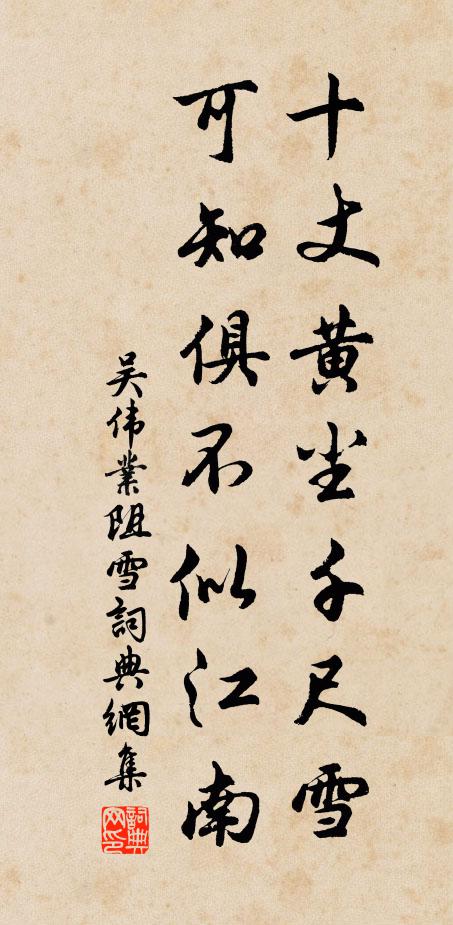 十丈黄尘千尺雪
可知俱不似江南
吴伟業阻雪詞典網集
詞典网印